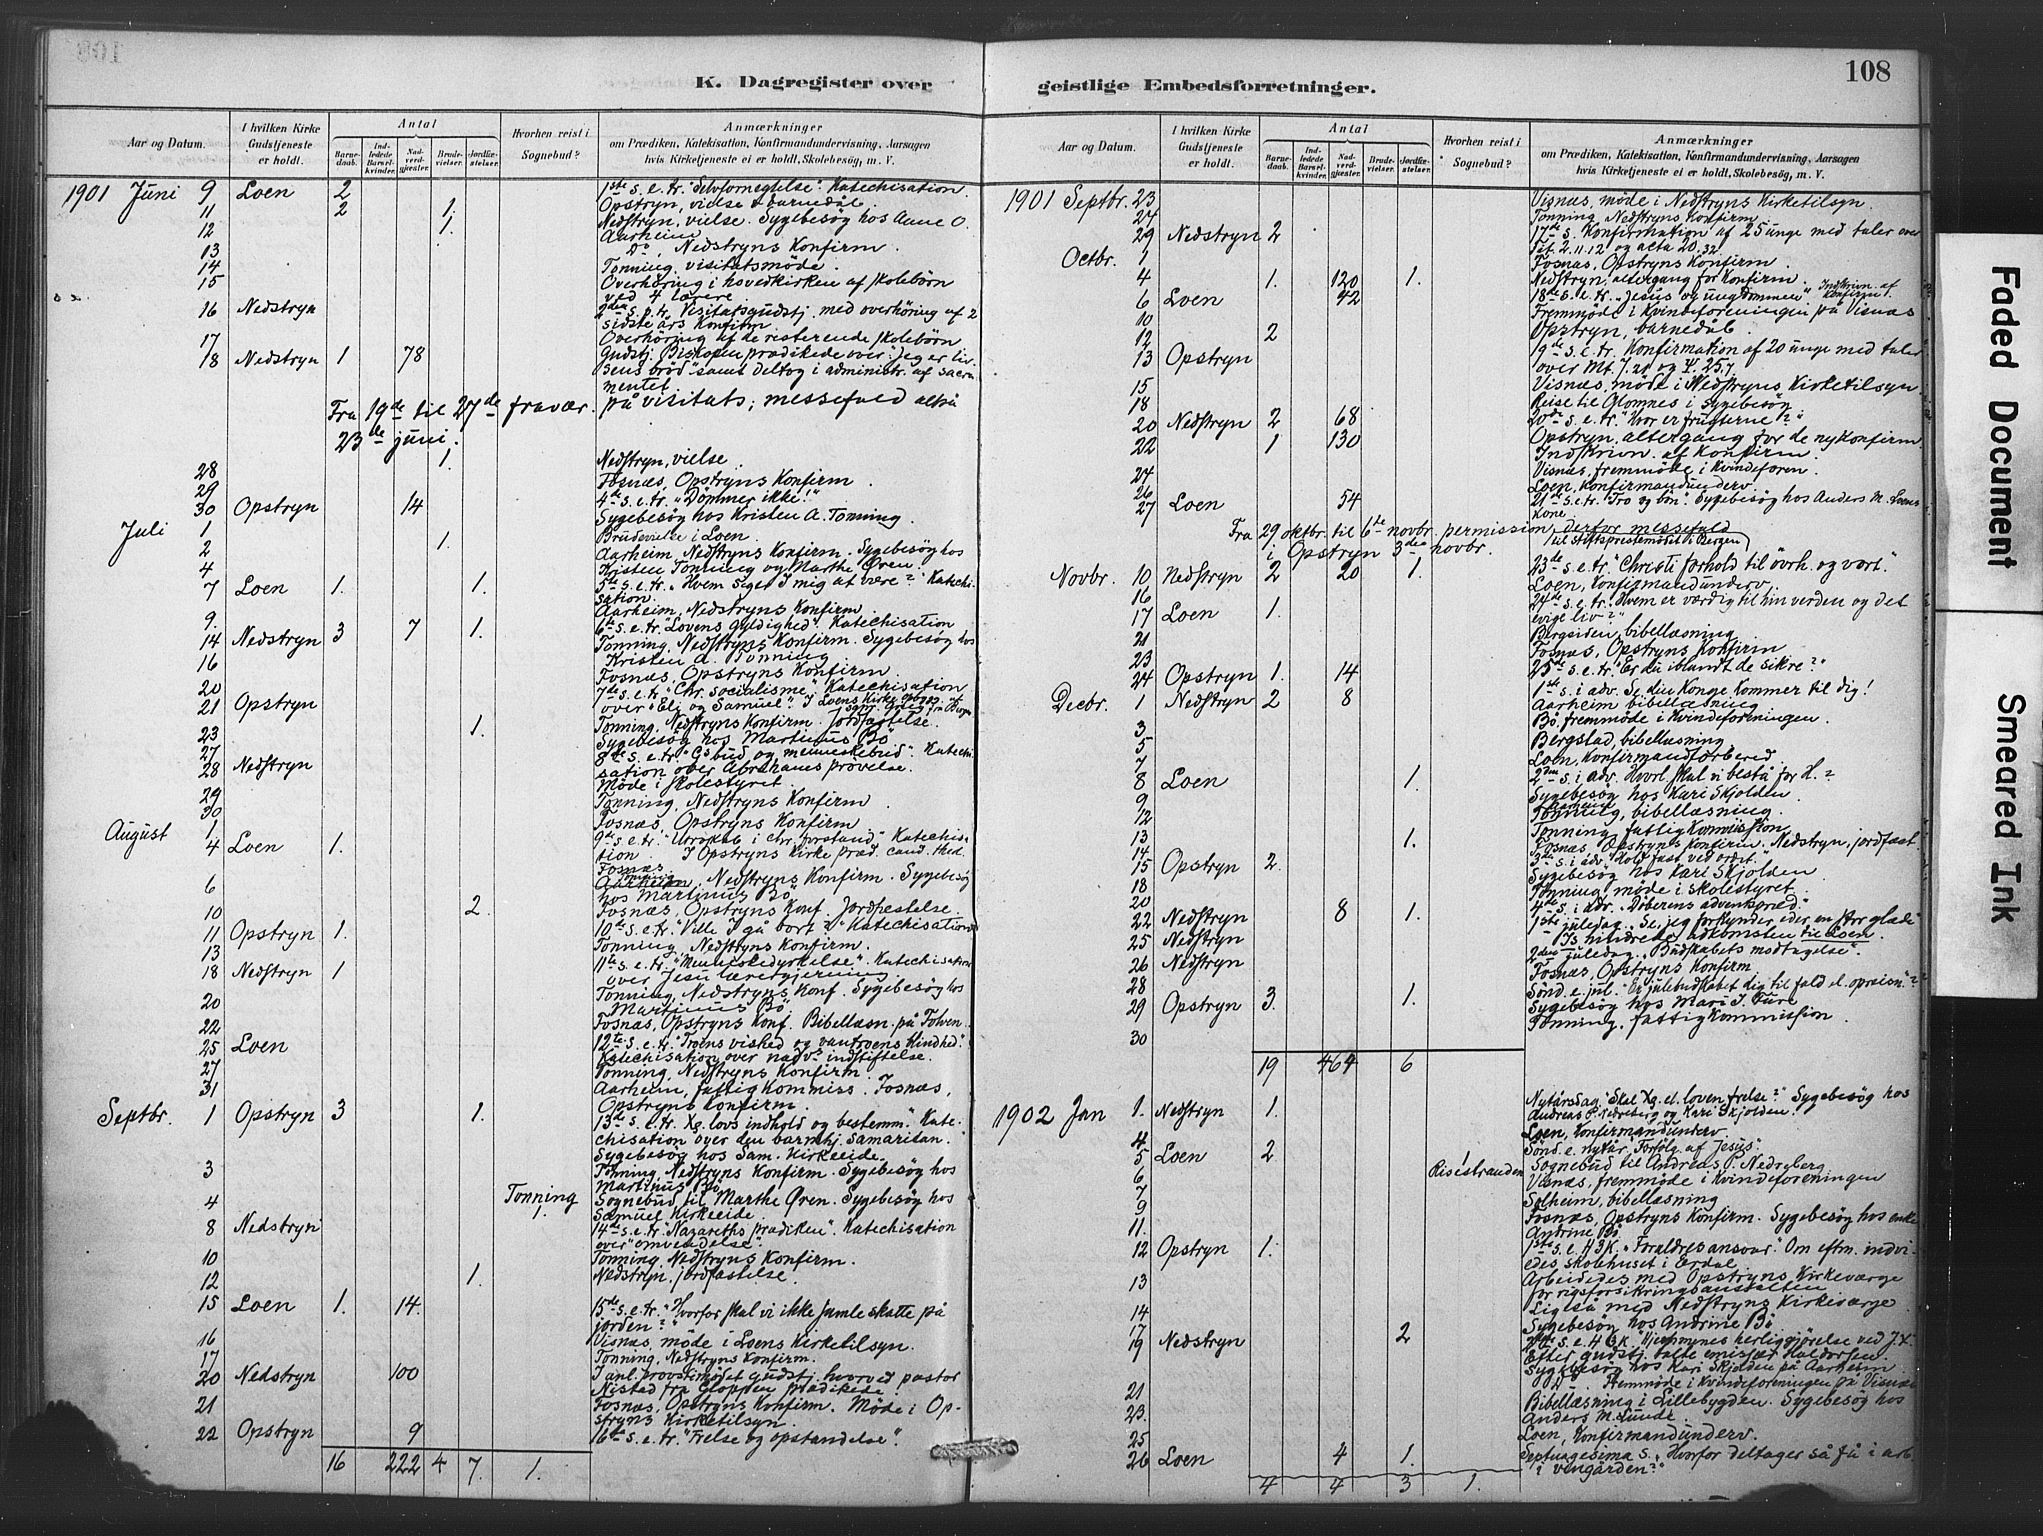 108
K. Dagregister over
geistlige Embedsforretninger.
Aar og Datum.
I hvilken Kirke Gudstjeneste er holdt.
Antal
Barnedaab.
Indledede Barselkvinder.
Nadverdgjæster.
Brudevielser.
Jordfæstelser.
Hvorhen reist i Sognebud?
Anmærkninger
om Prædiken, Katekisation, Konfirmandundervisning, Aarsagen
hvis Kirketjeneste ei er holdt, Skolebesøg, m. V.
1901 Juni 9 Loen 2 1ste s. e. tr. "Selvfornegtelse". Katechisation
11 2 1. Opstryn, vielse & barnedåb.
12 1. Nedstryn, vielse. Sygebesøg hos Anne O.
Aarheim
13 Do, Nedstryns Konfirm.
14 Tonning, visitatsmøde.
15 Overhøring i hovedkirken af skolebørn
ved 4 lærere
16 Nedstryn 2den s. e. tr. Visitatsgudstj. med overhøring af 2
sidste års Konfirm
17 Overhøring af de resterende skolebørn
18 Nedstryn 1 78 Gudstj. Biskopen prædikede over: "Jeg er liv-
sens brød" samt deltog i administr. af sacra-
mentet
Fra 19de til 27de fravær. på visitats; messefald altså
23de juni.
28 1. Nedstryn, vielse
29 Fosnæs, Opstryns Konfirm.
30 Opstryn 14 4de s. e. tr. "Dømmer ikke!"
Juli 1 Sygebesøg hos Kristen A. Tonning.
2 1. Brudevielse i Loen.
4 Aarheim, Nedstryns Konfirm. Sygebesøg hos
Kristen Tonning og Marthe Øren.
7 Loen 1. 1. 5te s. e. tr. "Hvem siger I mig at være?" Katechi-
sation.
9. Aarheim, Nedstryns Konfirm.
14 Nedstryn 3 7 1. 6te s. e. tr. "Lovens gyldighed". Katechisation
16 Tonning, Nedstryns Konfirm. Sygebesøg hos
Kristen A. Tonning
20 Fosnæs, Opstryns Konfirm.
21 Opstryn 7de s. e. tr. "Chr. socialisme". Katechisation
over "Eli og Samuel". I Loens Kirke
23 1. Tonning, Nedstryns Konfirm. Jordfæstelse.
27 Sygebesøg hos Martinus Bö
28 Nedstryn 8de s. e. tr. "Gs bud og menneskebud". Katechi-
sation over Abrahams prøvelse.
29 Møde i skolestyret.
30 Tonning, Nedstryns Konfirm.
August 1 Fosnæs, Opstryns Konfirm
4 Loen 1. 9de s. e. tr. "Urokab i chr. forstand" Katechisa-
tion. I Opstryns Kirke præd. cand.
Fosnæs
6 Tonning, Nedstryns Konfirm. Sygebesøg
hos Martinus Bö
10 2. Fosnæs, Opstryns Konf. Jordfæstelse
11 Opstryn 1. 10de s. e. tr. "Ville I gå bort?" Katechisation
13 Tonning, Nedstryns Konfirm.
18 Nedstryn 1 11te s. e. tr. "Menneskedyrkelse". Katechisation
over Jesu lærergjerning
20 Tonning, Nedstryns Konf. Sygebesøg hos
Martinus Bö
22 Fosnæs, Opstryns Konf. Bibellæsn. på Tolven.
25 Loen 12te s. e. tr. "Troens vished og vantroens blindhed".
Katechisation over nadvs indstiftelse.
27 Tonning, Nedstryns Konfirm
31 Aarheim, fattigkommiss. Fosnæs,
Opstryns Konfirm.
Septbr. 1 Opstryn 3 1. 13de s. e. tr. Xg. lovs indhold og bestemm. Kate-
chisation over den barmhj. samaritan.
Sygebesøg hos Sam. Kirkeeide
3 Tonning, Nedstryns Konfirm. Sygebesøg hos
Martinus Bö
4 Tonning 1. Sognebud til Marthe Øren. Sygebesøg hos
Samuel Kirkeeide
8 Nedstryn 14de s. e. tr. "Nazareths prædiken". Katechisation
over "omvendelse".
10 Tonning, Nedstryns Konfirm.
12 1. Nedstryn, jordfæstelse.
15 Loen 1. 14. 15de s. e. tr. "Hvorfor skal vi ikke samle skatte på
jorden?"
16 Visnæs, møde i Loens Kirketilsyn.
17 Tonning, Nedstryns Konfirm.
20 Nedstryn 100 I anl. provstimødet gudstj. hvorved pastor
Nistad fra Gloppen prædikede
21 Fosnæs, Opstryns Konfirm. Møde i Op-
stryns Kirketilsyn.
22 Opstryn 9 16de s. e. tr. "Frelse og opstandelse".
16 222 4 7. 1.
Aar og Datum.
I hvilken Kirke Gudstjeneste er holdt.
Antal
Barnedaab.
Indledede Barselkvinder.
Nadverdgjæster.
Brudevielser.
Jordfæstelser.
Hvorhen reist i Sognebud?
Anmærkninger
om Prædiken, Katekisation, Konfirmandundervisning, Aarsagen
hvis Kirketjeneste ei er holdt, Skolebesøg, m. V.
1901 Septbr. 23 Visnæs, møde i Nedstryns Kirketilsyn.
24 Tonning, Nedstryns Konfirm.
29 Nedstryn 2 17de s. Konfirmation af 25 unge med taler over
Tit. 2. 11. 12 og acta 20. 32.
Octbr. 1 Fosnæs, Opstryns Konfirm.
4 1. 120 1. Nedstryn, altergang for Konfirm.
6 Loen 42 18de s. e. tr. "Jesus og ungdommen" Indskrivn. af Konfirm.
10 Fremmøde i Kvindeforeningen på Visnæs
12 2 Opstryn, barnedåb.
13 Opstryn 19de s. e. tr. Konfirmation af 20 unge med taler
over Mt. 7. 21 og Y. 25. 7.
15 Visnæs, møde i Nedstryns Kirketilsyn
18 Reise til Glomnes i sygebesøg
20 Nedstryn 2 68 20de s. e. tr. "Hvor er frugterne?"
22 1 130 Opstryn, altergang for de nykonfirm.
Indskrivn. af Konfirm.
24 Visnæs, fremmøde i Kvindeforen.
26 Loen, Konfirmandunderv.
27 Loen 54 21de s. e. tr. "Tro og bön". Sygebesøg hos Anders M. Loens
Kone.
Fra 29 oktbr. til 6te novbr. permission, derfor messefald
i Opstryn 3die novbr. (til stiftsprestemødet i Bergen)
Novbr. 10 Nedstryn 2 20 1. 23de s. e. tr. "Christi forhold til övrh. og vort."
16 Loen, Konfirmandunderv.
17 Loen 1. 24de s. e. tr. "Hvem er værdig til hin verden og det
evige liv?"
21 Bergsiden, bibellæsning
23 Fosnæs, Opstryns Konfirm
24 Opstryn 1. 14 25de s. e. tr. "Er du iblandt de sikre?"
Decbr. 1 Nedstryn 2 8 1ste s. i adv. Se, din Konge kommer til dig!
3 Aarheim bibellæsning
5 Bö, fremmøde i Kvindeforeningen.
7 Bergstad, bibellæsning
Loen, Konfirmandforbered
8 Loen 1. 2den s. i adv. Hvorl. skal vi bestå for H.?
9 Sygebesøg hos Kari Skjolden
12 Tonning, bibellæsning.
13 1. Tonning, fattigkommission
14 Fosnæs, Opstryns Konfirm. Nedstryn, jordfæst.
15 Opstryn 2. 3die s. i adv. "Hold fast ved ordet."
18 Sygebesøg hos Kari Skjolden
20 Tonning, møde i skolestyret
22 Nedstryn 8 1. 4de s. i adv. "Döberens adventspræd."
25 Nedstryn 1ste juledag. "Se, jeg forkynder eder en stor glæde"
Is hindrede adkomsten til Loen.
26 Nedstryn 2den juledag. "Budskabets modtagelse".
28 Fosnæs, Opstryns Konfirm
29 Opstryn 3. 1. Sönd. e. jul. "Er julebudskabet dig til fald el. opreisn.?"
Sygebesøg hos Mari J. Fure
30 Tonning, fattigkommission.
19 464 6
1902 Jan 1. Nedstryn 1. Nytårsdag "Skal Xg. el. loven frelse?" Sygebesøg hos
Andreas J. Nedreberg og Kari Skjolden.
4 Loen, Konfirmandunderv.
5 Loen 2 Sönd. e. nytår, "Forfölg. af Jesus"
6 Risestranden Sognebud til Andreas J. Nedreberg
7 Visnæs, fremmøde i Kvindeforeningen
9 Solheim, bibellæsning
11. Fosnæs, Opstryns Konfirm. Sygebesøg hos enke
Andrine Bö.
12 Opstryn 1. 1ste s. e. H3K. "Forældres ansvar." Om eftm. indvi-
edes skolehuset i Erdal
13 Arbeidedes med Opstryns Kirkeværge
for rigsforsikringsanstalten
14 Ligeså med Nedstryns Kirkeværge
17 Sygebesøg hos Andrine Bö
19 Nedstryn 2 2den s. e. H3K. Hjemmenes herliggjørelse ved J. X.
Efter gudstj. talte emissær Haldorsen.
Sygebesøg hos Kari Skjolden på Aarheim
21 Fremmøde i Kvindeforeningen på Visnæs
23. Bibellæsning i Lillebygden. Sygebesøg hos
Anders M. Lunde.
25 Loen, Konfirmandunderv.
26 Loen 4 1. Septuagesima s. "Hvorfor deltager så få i arb.
i vingården?"
4 4 3 1.
Faded Document
Smeared Ink